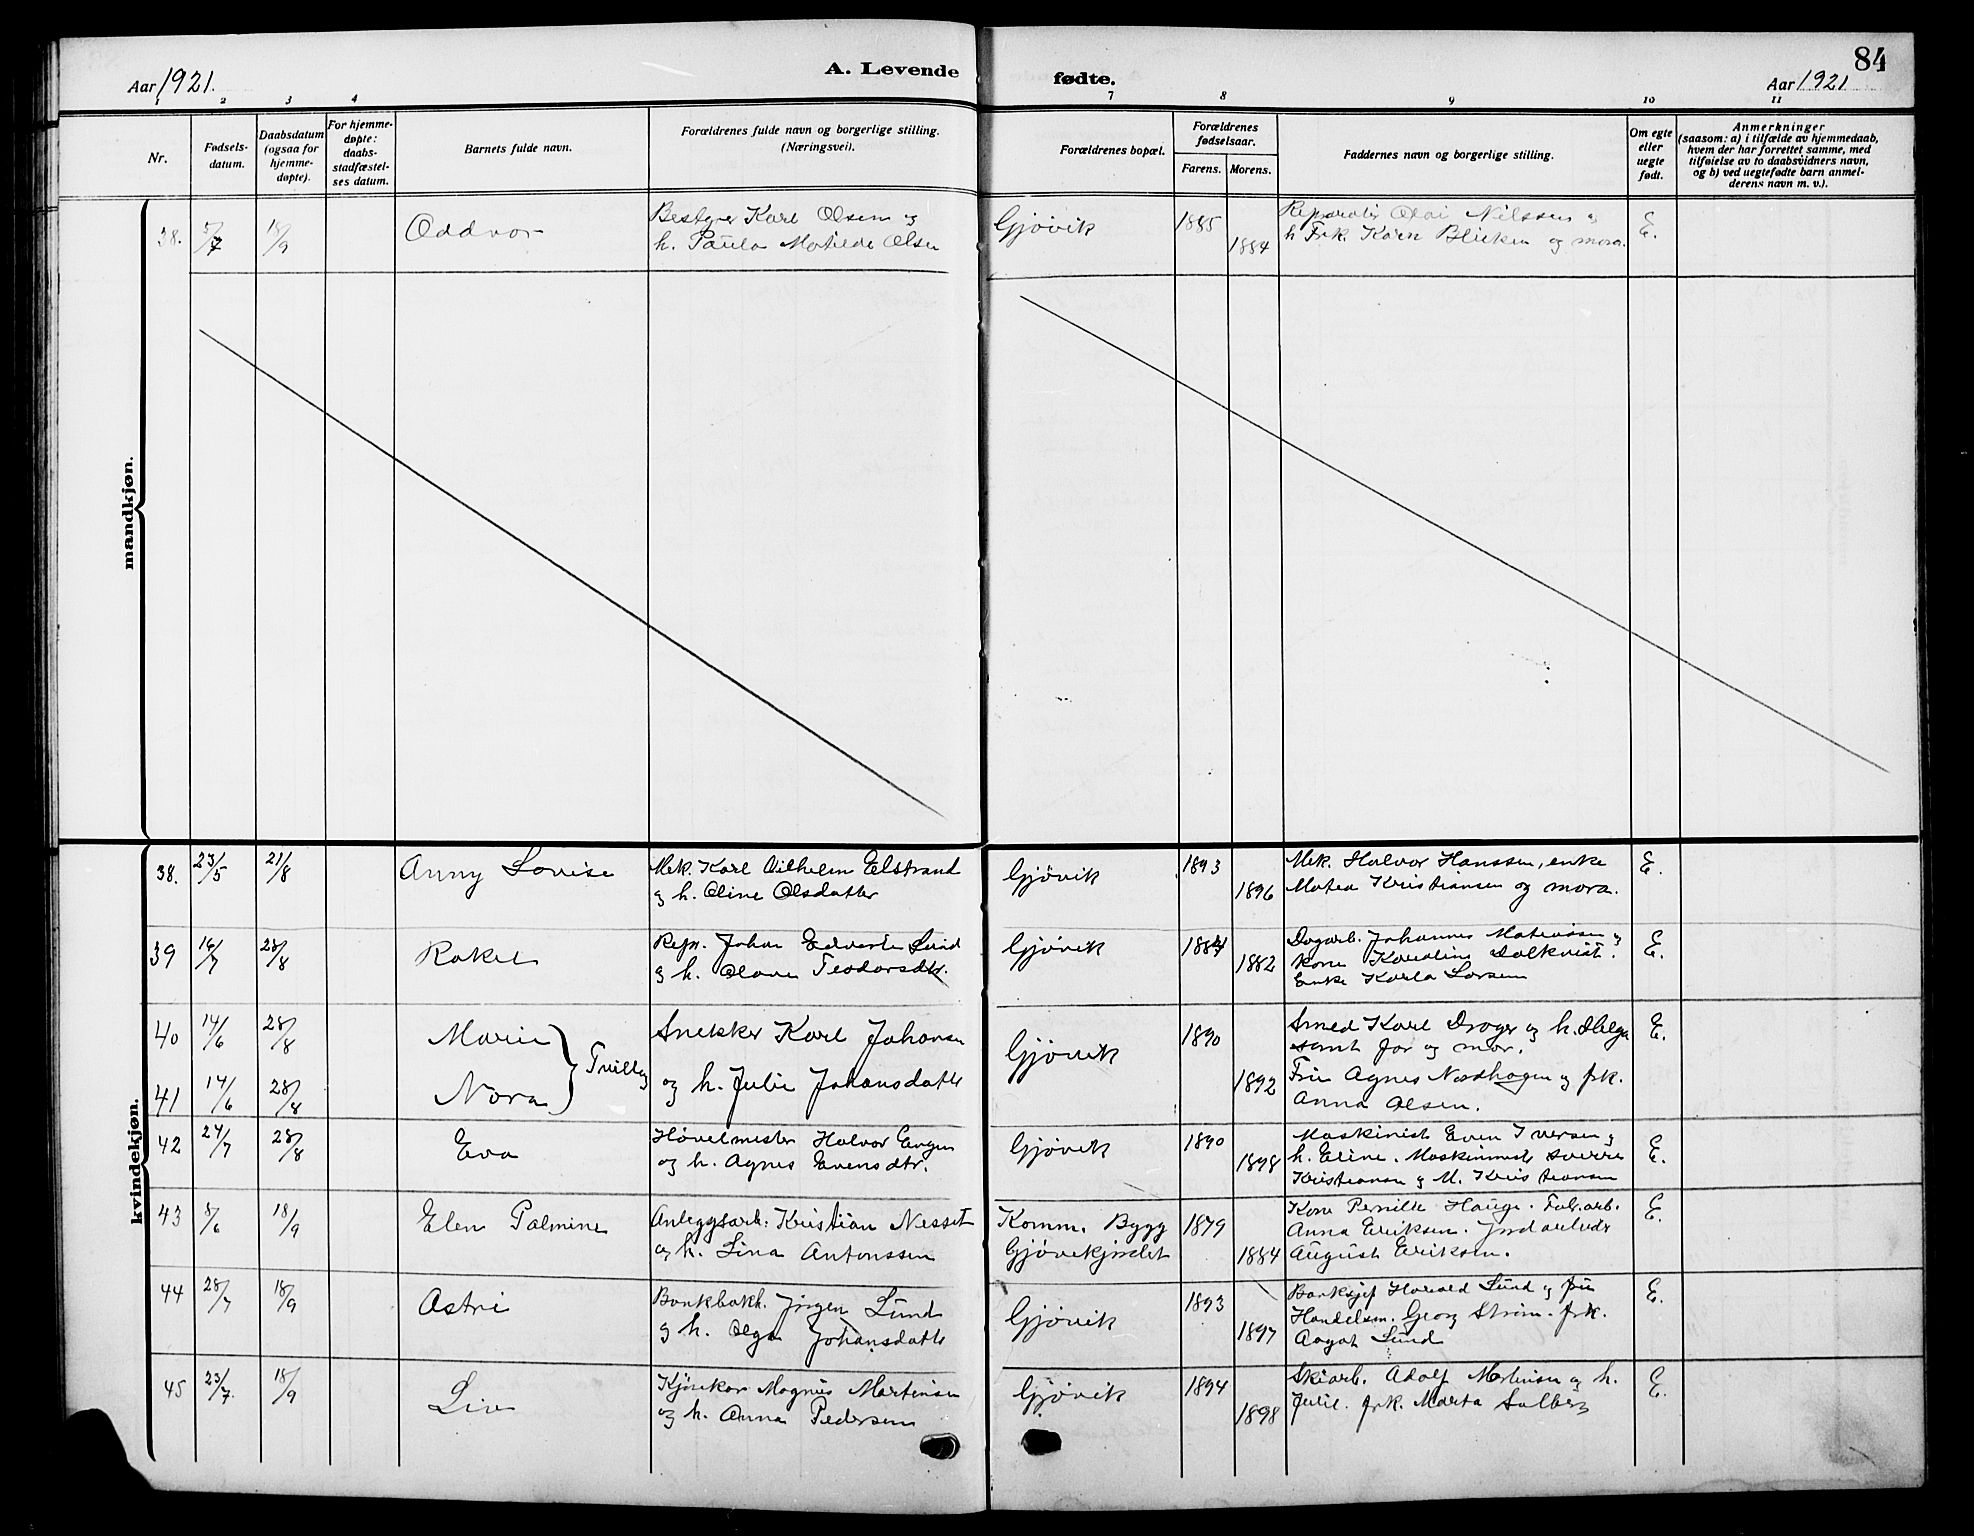 Aar 1921.
A. Levende
fødte.
Aar 1921
84
1 2 3 4 7 8 9 10 11
Nr.
Fødsels-
datum.
Daabsdatum
(ogsaa for
hjemme-
døpte).
For hjemme-
døpte:
daabs-
stadfæstel-
ses datum.
Barnets fulde navn.
Forældrenes fulde navn og borgerlige stilling.
(Næringsvei).
Forældrenes bopæl.
Forældrenes
fødselsaar.
Farens. Morens.
Faddernes navn og borgerlige stilling.
Om egte
eller
uegte
født.
Anmerkninger
(saasom: a) i tilfælde av hjemmedaab,
hvem der har forrettet samme, med
tilføielse av to daabsvidners navn,
og b) ved uegtefødte barn anmel-
derens navn m. v.).
mandkjøn.
38. 5/7 18/9 Oddvar
Bestyrer Karl Olsen og
h. Paula Matilde Olsen
Gjøvik 1885 1884
Reparatør Olai Nilssen og
h Frk. Karen Blicken og mora.
E.
kvindekjøn.
38. 23/5 21/8 Anny Lovise
Mek. Karl Vilhelm Elstrand
og h. Oline Olsdatter
Gjøvik 1893 1896
Mek. Halvor Hanssen, enke
Matea Kristiansen og mora.
E.
39 16/7 28/8 Rakel
Rep. Johan Edvard Lund
og h. Olava Teodorsdtr.
Gjøvik 1884 1882
Dagarb. Johannes Mateussen og
kone Karoline Dalkvist.
Enke Karla Larsen
E.
40 14/6 28/8 Marie
41 14/6 28/8 Nora
Tvilling
Snekker Karl Johansen
og h. Julie Johansdatter
Gjøvik 1890 1892
Smed Karl Drager og h. Helga
samt far og mor.
Fru Agnes Nordhagen og frk.
Anna Olsen.
E.
42 24/7 28/8 Eva
Høvelmester Halvor Engen
og h. Agnes Evensdtr.
Gjøvik 1890 1898
Maskinist Even Iversen og
h. Eline. Maskinmest Sverre
Kristiansen og M. Kristiansen
E.
43 8/6 18/9 Elen Palmine
Anleggsarb. Kristian Nesset
og h. Lina Antonssen
Komm. Bygg
Gjøvikfjeldet 1879 1884
Kone Pernille Hauge. Fabr.arb.
Anna Eriksen. Jordarbeider
August Eriksen.
E.
44 28/7 18/9 Astri
Bankbokh. Jörgen Lund
og h. Olga Johansdatter
Gjøvik 1893 1897
Banksjef Harald Lund og fru
Handelsm. Georg Strøm. frk.
Aagot Lund
E.
45 23/7. 18/9 Liv
Kjörekar Magnus Martinsen
og h. Anna Pedersen
Gjøvik 1894 1898
Skiarb. Adolf Martinsen og h.
Julie. frk. Marta Solberg
E.